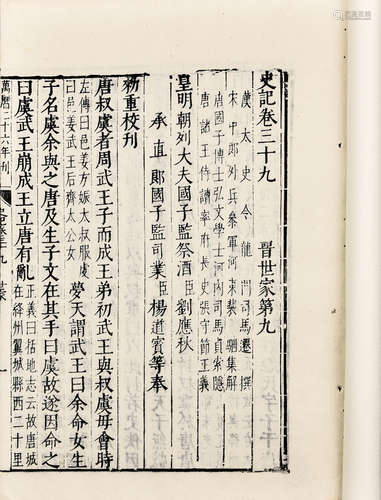 史記卷三十九
晉世家第九
漢太史令龍門司馬遷撰
宋中郎外兵參軍河東裴駰集解
唐國子博士弘文學士河內司馬貞索隱
唐諸王侍讀率府長史張守節正義
皇明朝列大夫國子監祭酒臣劉應秋
承直郎國子監司業臣楊道賓等奉
勅重校刊
唐叔虞者周武王子而成王弟初武王與叔虞母會時
左傳曰邑姜方娠太叔服虔
曰邑姜武王后齊太公女
夢天謂武王曰余命女生
子名虞余與之唐及生子文在其手曰虞故遂因命之
曰虞武王崩成王立唐有亂
正義曰括地志云故唐城
在絳州翼城縣西二十里
萬曆二十六年刊